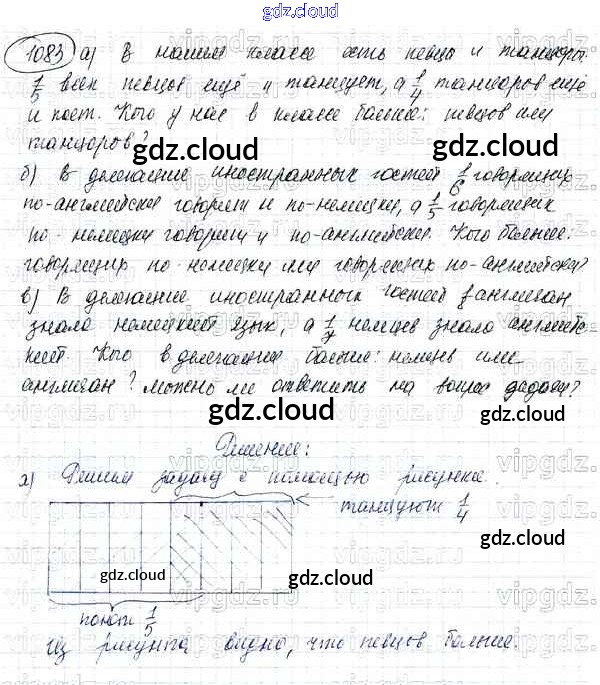 gdz.cloud
1083 а) В нашем классе есть певцы и танцоры.
1/5 всех певцов ещё и танцует, а 1/4 танцоров ещё
и поёт. Кого у нас в классе больше: певцов или
танцоров?
gdz.cloud
б) В делегации иностранных гостей 1/6 говорящих
по-английски говорят и по-немецки, а 1/5 говорящих
по-немецки говорят и по-английски. Кого больше:
говорящих по-немецки или говорящих по-английски?
в) В делегации иностранных гостей англичан
знало немецкий язык, а 1/7 немцев знало английс-
кий. Кого в делегации больше: немцев или
англичан? Можно ли ответить на вопрос задачи?
gdz.cloud
Решение:
а) Решим задачу с помощью рисунка.
танцуют 1/4
gdz.cloud
gdz.cloud
поют 1/5
Из рисунка видно, что певцов больше.
gdz.cloud
gdz.cloud